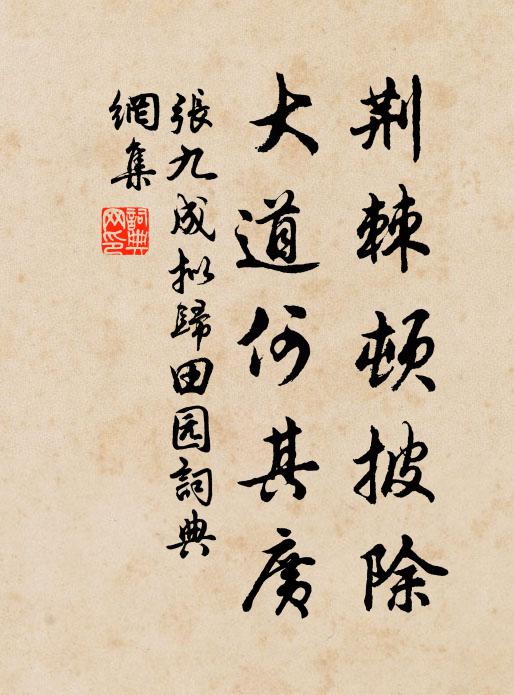 荆棘頓披除
大道何其廣
張九成拟歸田园詞典
網集
詞典
网印